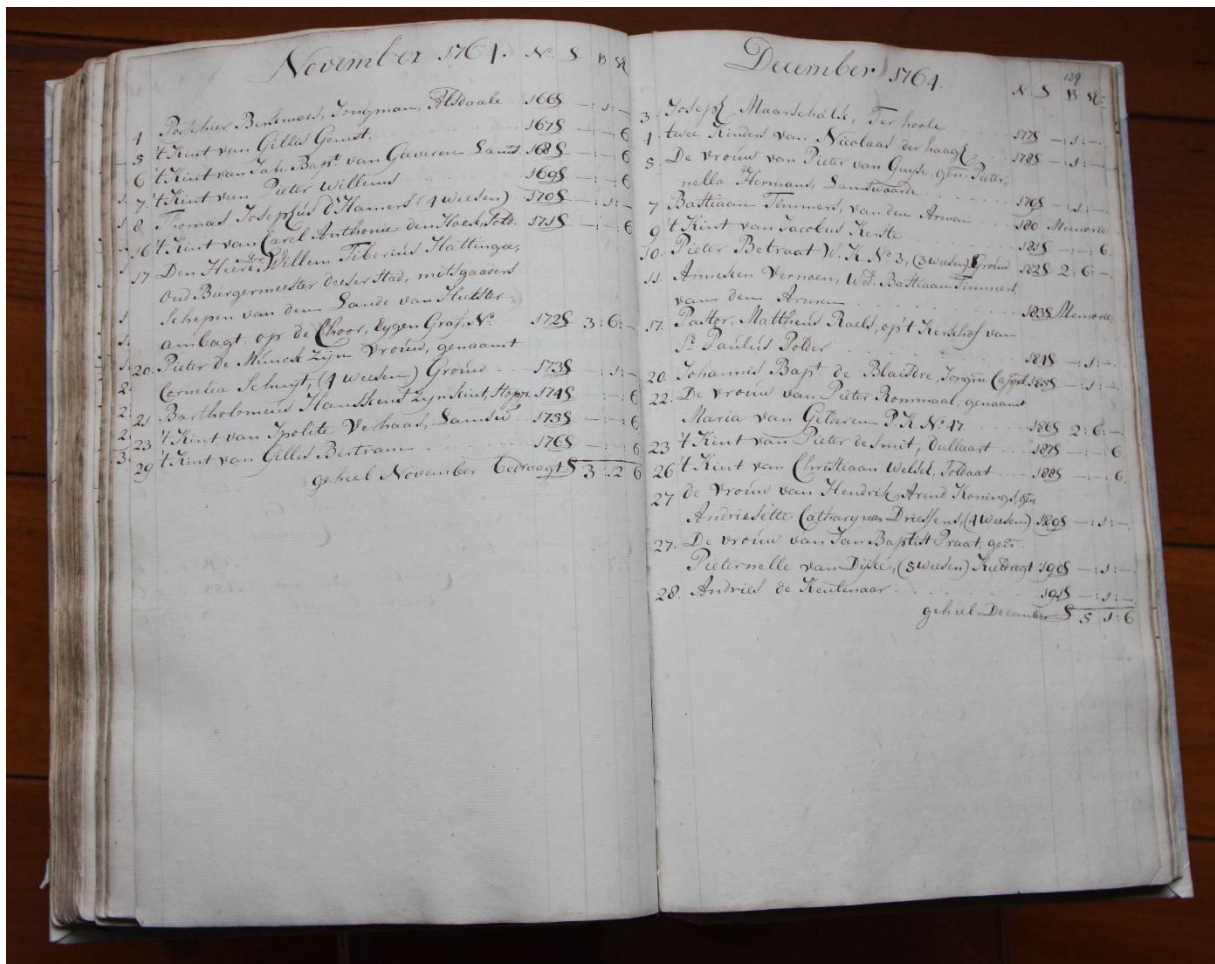 November 1764. No. S
4 Bessemoes, Jongman, Absdaale 166 S — : 1 : —
5 't Kint van Gillis Genst. 167 S — : — 6
6 't Kint van Jan Bapt. van Gaveren Sants 168 S — : — 6
7. 't Kint van Pieter Willems 169 S — : — 6
8 Thomas Josephus d'Hamers (4 weesen) 170 S — : 1 : —
16 't Kint van Carel Anthonie den Hoek, Sold. 171 S — : — 6
17 Den Heere Willem Tiberius Hattinga,
Oud Burgermeester deeser Stad, mitsgaaders
Schepen van den Lande van Hulster-
ambagt, op de Choor, Eygen Graf, No. 172 S 3 : 6 : —
20. Pieter de Munck zijn Vrouw, genaamt
Cornelia (4 weesen) Grouw 173 S — : 1 : —
21 Bartholomeus zyn kint, 174 S — : — 6
23 't Kint van Ipolite Verhaas, 175 S — : — 6
29 't Kint van Gillis Bertram 176 S — : — 6
geheel November bedraagt S 3 : 12 6
December 1764. 139
No. S
3. Joseph Maarschalk, Ter hoole 177 S — : 1 : —
4. twee Kinders van Nicolaas der haagh 178 S — : 1 : —
5. De vrouw van Pieter van Guyse, gen. Pieter-
nella Hermans, 179 S — : 1 : —
7 Bastiaan Timmers, van den Armen 180 Memorie
9 't Kint van Jacobus Kerste 181 S — : — 6.
10. Pieter Betraat W. K. No 3, (3 wesen) Grouw 182 S 2 : 6 : —
11. Anneken Vernoen, Wed. Bastiaan Timmers,
van den Armen 183 S Memorie
17. Pastor, Mattheus Raels, op't Kerkhof van
St. Paulus Polder 184 S — : 1 : —
20. Johannis Bapt. de Blaisere, Jongm. 185 S — : 1 : —
22. De vrouw van Pieter Rommaal, genaamt
Maria van Gelderen P. K. No. 17 186 S 2 : 6 : —
23 't Kint van Pieter de Smit, Dullaart 187 S — : — 6.
26 't Kint van Christiaan Welsel, Soldaat 188 S — : — 6
27 de Vrouw van Hendrik Arend Konings, gen
Andriesette Catharyna Driessens, (4 weesen) 189 S — : 1 : —
27. De vrouw van Jan Baptist Praat, gen.
Pieternelle van Dijke, (5 weesen) 190 S — : 1 : —
28. Andries de Keutenaar 191 S — : 1 : —
geheel December S 5 1 : 6